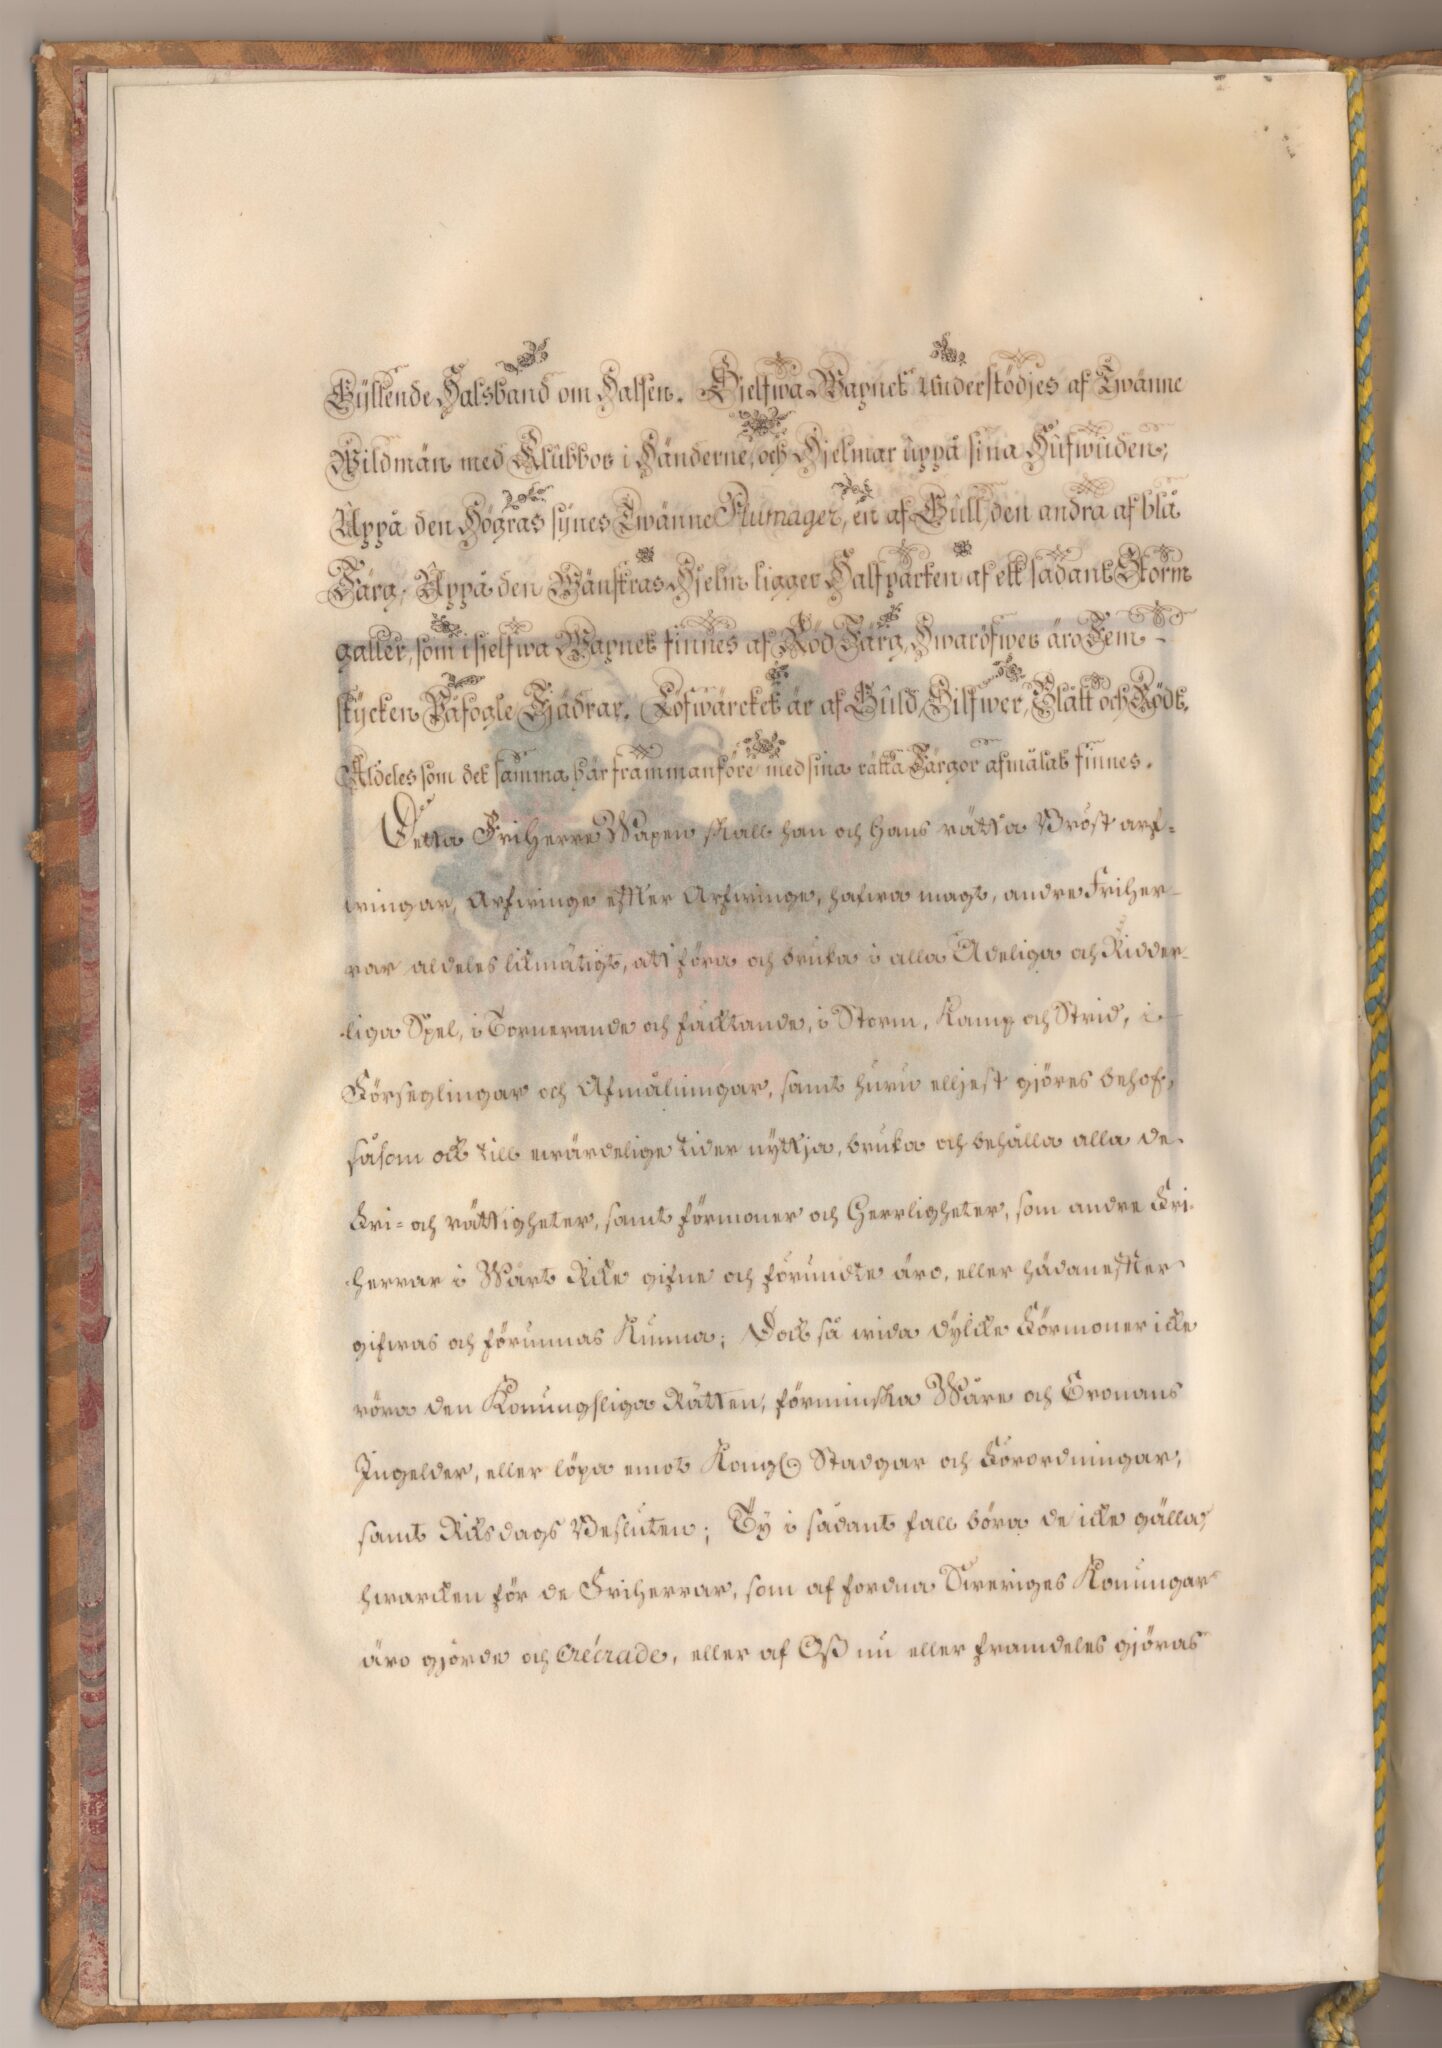 Gyllende Halsband om Halsen. Sielfwa Wapnet Understödjes af Twänne
Wildmän med Klubbor i Händerne, och Hjelmar uppå sina Hufwuden;
Uppå den Högras synes Twänne Plumager, en af Gull, den andra af blå
Färg, Uppå den Wänstras Hjelm ligger Halfparten af ett sådant Storm
galler, som i sielfwa Wapnet finnes af Röd Färg, Hwaröfwer äro Fem
stycken Påfogle Fjädrar. Löfwärcket är af Guld, Silfwer, Blått och Rödt,
Aldeles som det samma här frammanföre med sina rätta Färgor afmålat finnes.
Detta FriHerre Wapen skall han och Hans rätta Bröst arf-
wingar, Arfwinge efter Arfwinge, hafwa magt, andre Friher-
rar aldeles likmätigt, att föra och bruka i alla Adeliga och Ridder-
liga Spel, i Tornerande och fäcktande, i Storm, Kamp och Strid, i
Förseglingar och Afmålningar, samt huru elljest gjöres behof,
såsom ock till ewärdelige tider nyttja, bruka och behålla alla de
Fri- och rättigheter, samt förmoner och Herrligheter, som andre Fri-
herrar i Wårt Rike gifne och förundte äro, eller hädanefter
gifwas och förunnas Kunna; Dock så wida dylike Förmoner icke
röra den Konungsliga Rätten, förminska Wåre och Cronans
Ingelder, eller löpa emot Kongl. Stadgar och Förordningar,
samt Riksdags Besluten; Ty i sådant fall böra de icke gälla,
hwarcken för de Friherrar, som af fordna Sweriges Konungar
äro gjorde och créerade, eller af Oß nu eller framdeles gjöras